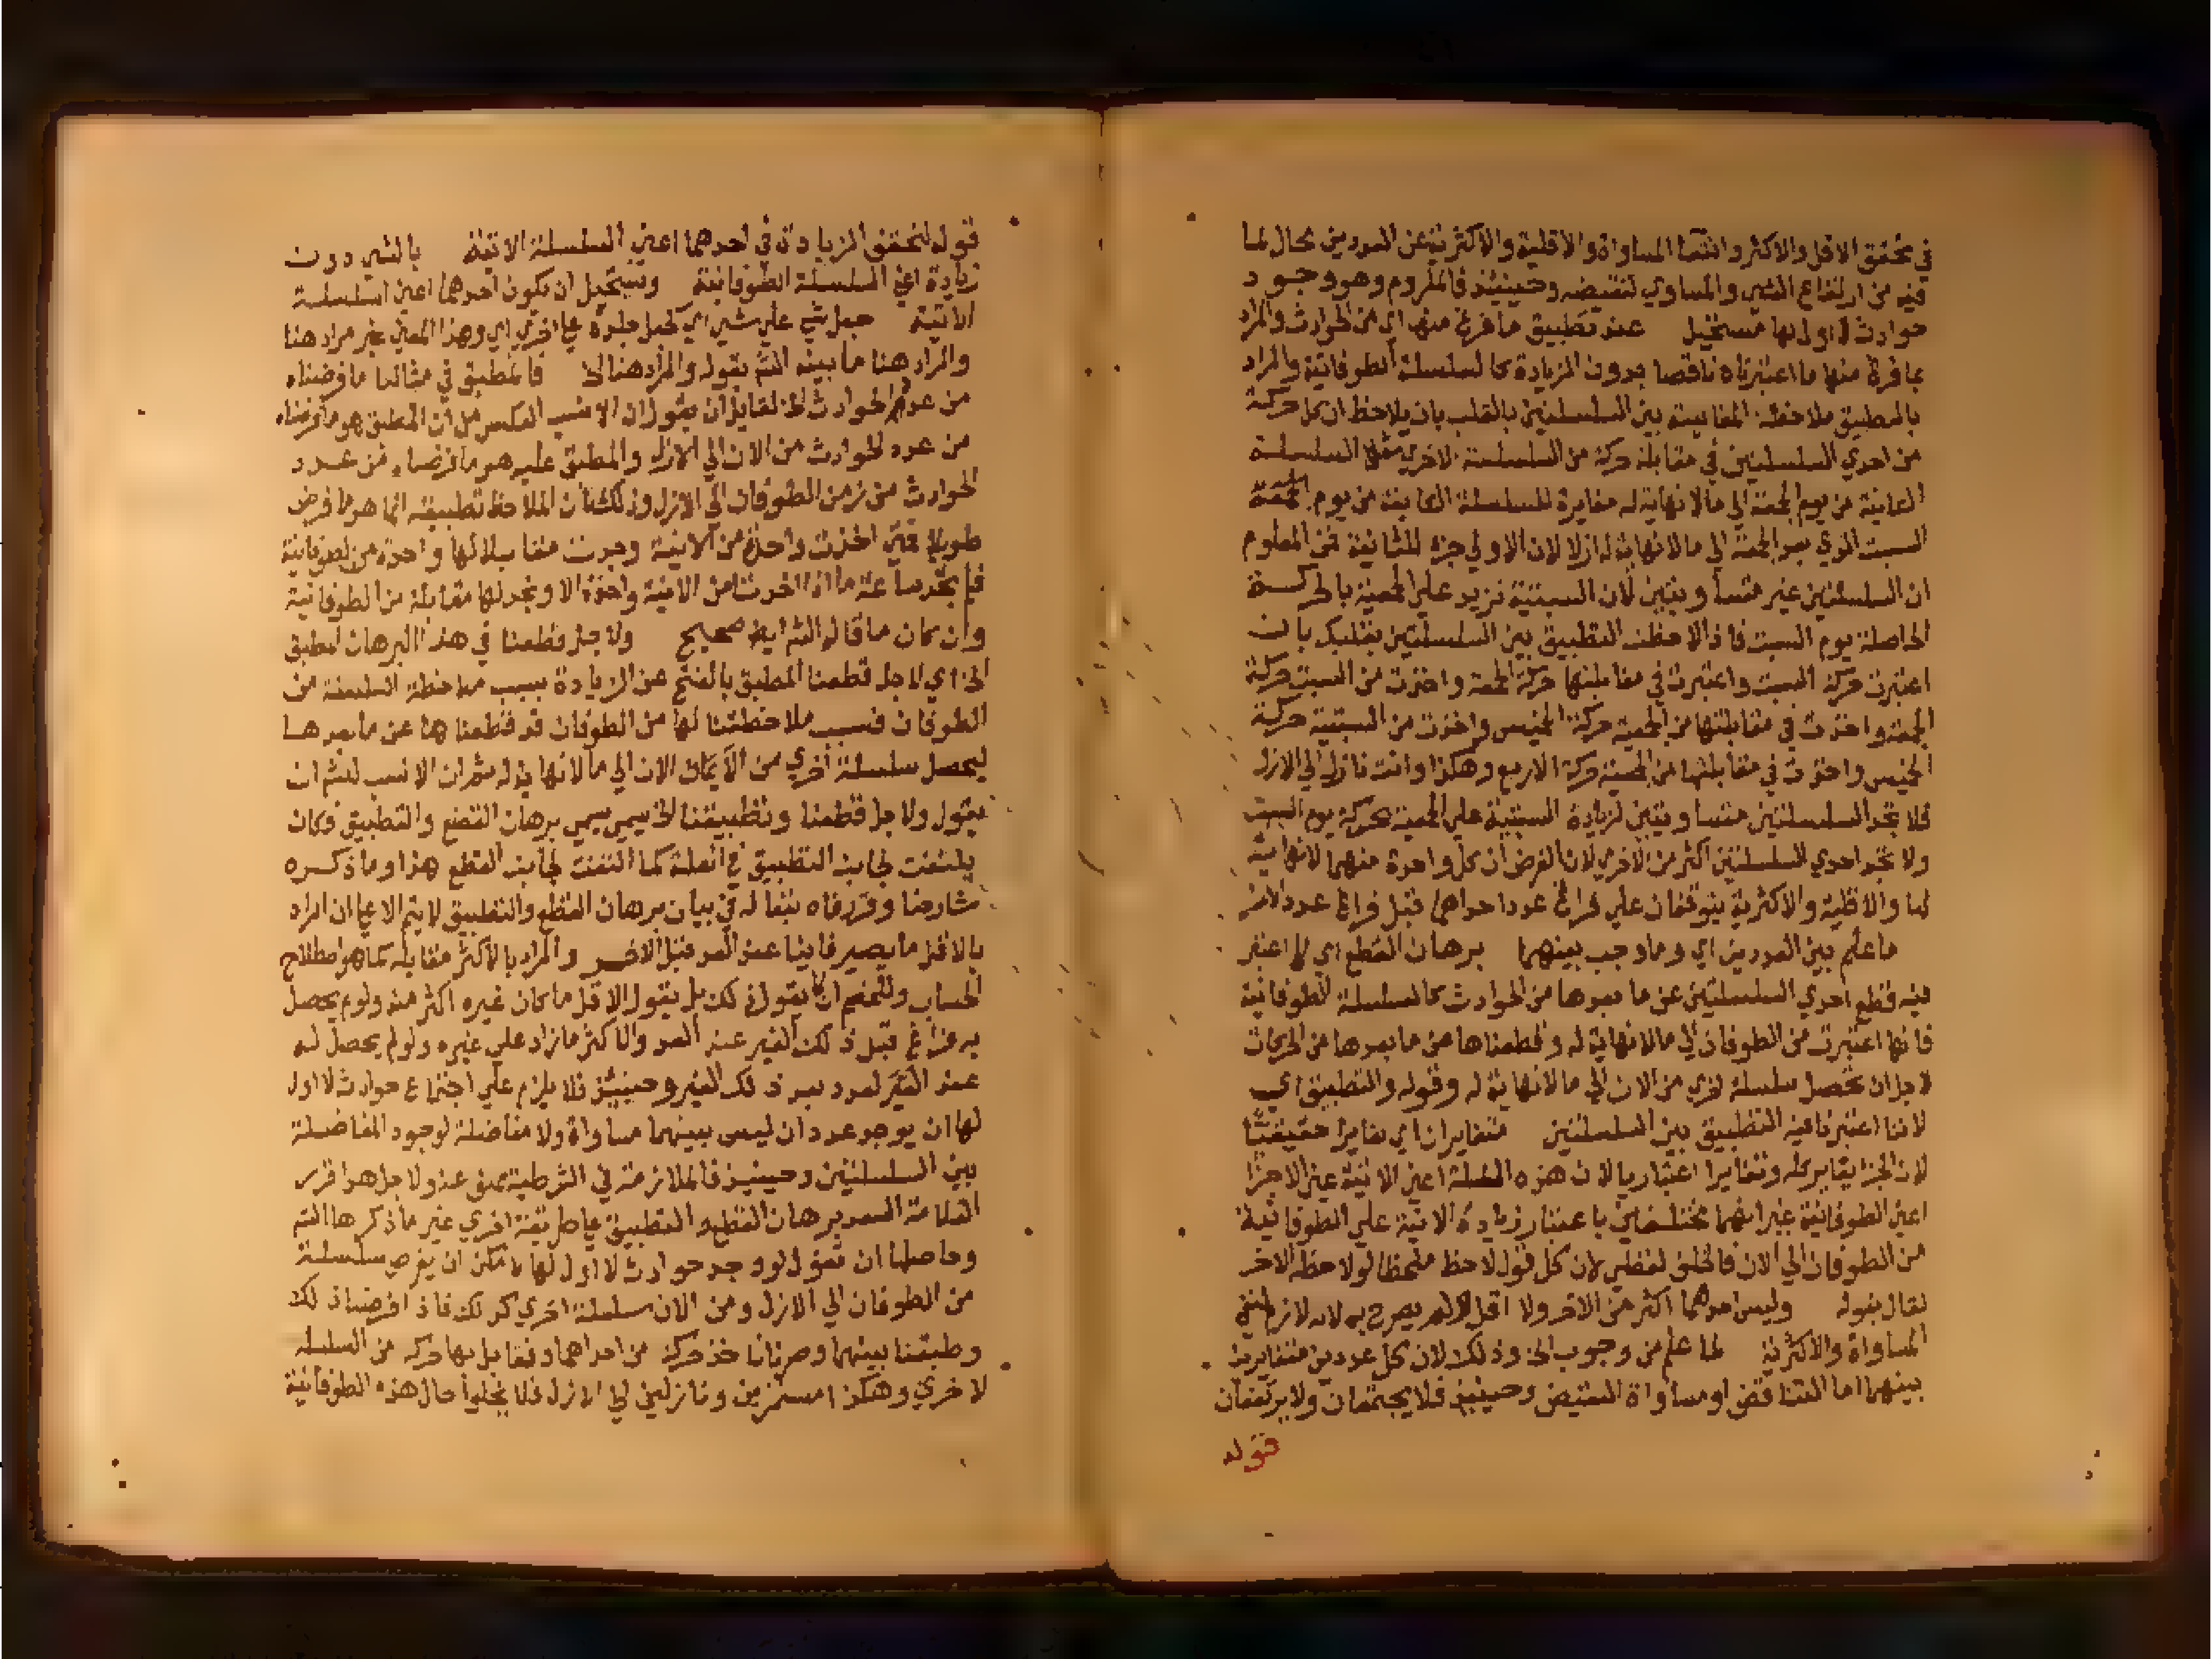 في تحقق الاقل والاكثر وانتفا المساواة والاقلية والاكثرية عن العددين محال لما
فيه من ارتفاع الشي والمساوي لنقيضه وحينئذ فالملزوم وهو وجود
حوادث لا اول لها مستحيل عند تطبيق ما فرغ منها اي من الحوادث والمراد
بما فرغ منها ما اعتبرناه ناقصا بدون الزيادة كالسلسلة الطوفانية والمراد
بالتطبيق ملاحظة المقابسة بين السلسلتين بالقلب بان يلاحظ ان كل حركة
من احدي السلسلتين في مقابلة حركة من السلسلة الاخري مثلا السلسلة
من يوم الجمعة الي ما لا نهاية له مغايرة للسلسلة من يوم
السبت الذي بعد الجمعة الي ما لا نهاية له ازلا لان الاولي جزء للثانية فمن المعلوم
ان السلسلتين غير متساويتين لان السبتية تزيد علي الجمعية بالحركة
الحاصلة يوم السبت فاذا لاحظت التطبيق بين السلسلتين بقلبك بان
اعتبرت حركة السبت واعتبرت في مقابلتها حركة الجمعة واخذت من السبتية حركة
الجمعة واخذت في مقابلتها من الجمعية حركة الخميس واخذت من السبتية حركة
الخميس واخذت في مقابلتها من الجمعية حركة الاربع وهكذا وانت نازل الي الازل
فلا تجد السلسلتين متساويتين لزيادة السبتية علي الجمعية بحركة يوم السبت
ولا تجد احدي السلسلتين اكثر من الاخري لان الفرض ان كل واحدة منهما لا نهاية
لها والاقلية والاكثرية يتوقفان علي فراغ عدد احداهما قبل فراغ عدد الاخر
ما علم بين العددين اي وما وجب بينهما برهان القطع اي لما اعتبر
فيه قطع احدي السلسلتين عن ما بعدها من الحوادث كالسلسلة الطوفانية
فانها اعتبرت من الطوفان الي ما لا نهاية له وقطعناها عن ما بعدها من الحركات
لاجل ان تحصل سلسلة اخري من الان الي ما لا نهاية له وقوله والتطبيق اي
لاننا اعتبرنا فيه التطبيق بين السلسلتين متغايران اي تغايرا حقيقيا
لان الجزء يغاير كله وتغايرا اعتباريا لان هذه السلسلة اعني الانية عين الاجزا
اعني الطوفانية غير انهما مختلفان باعتبار زيادة الانية علي الطوفانية
من الطوفان الي الان فالخلق لفظي لان كل قول لاحظ ملحظا لو لاحظه الاخر
لقال بقوله وليس احدهما اكثر من الاخر ولا اقل لم يصرح به لانه لازم لنفي
المساواة والاكثرية لما علم من وجوب الخ وذلك لان كل عددين متغايرين
بينهما اما التناقض او مساواة النقيض وحينئذ فلا يجتمعان ولا يرتفعان
قوله
قوله لتحقق الزيادة في احدهما اعني السلسلة الانية بالشي دون
زيادة اعني السلسلة الطوفانية ويستحيل ان يكون احدهما اعني السلسلة
الانية جعل شي علي شي اي كجعل جلدة علي اخري اي وهذا المعني غير مراد هنا
والمراد هنا ما بينه الشم بقوله والمراد هنا الخ فالمطبق في مثالنا ما فرضناه
من عدم الحوادث الخ لقايل ان يقول ان الانسب العكس من ان المطبق هو ما فرضناه
من عدد الحوادث من الان الي الازل والمطبق عليه هو ما فرضناه من عدد
الحوادث من زمن الطوفان الي الازل وذلك لان الملاحظ تطبيقه انما هو ما فرض
طويلا فمتي اخذت واحدة من الانية وجدت مقابلا لها واحدة من الطوفانية
فلم تجد ساعة ما اذا اخذت من الانية واحدة الا وتجد لها مقابلة من الطوفانية
وان كان ما قاله الشم ايضا صحيح ولاجل قطعنا في هذا البرهان المطبق
الخ اي لاجل قطعنا المطبق بالفتح عن الزيادة بسبب ملاحظة السلسلة من
الطوفان فبسبب ملاحظتنا لها من الطوفان قد قطعناها عن ما بعدها
ليحصل سلسلة اخري من الان الي ما لا نهاية له ثم ان الانسب للشم ان
يقول ولاجل قطعنا وتطبيقنا الخ سمي برهان القطع والتطبيق فكان
يلتفت لجانب التطبيق في العلة كما التفت لجانب القطع هذا وما ذكره
شارحنا وقررناه تبعا له في بيان برهان القطع والتطبيق لا يتم الا علي ان المراد
بالاقل ما يصير فانيا عند العد قبل الاخر والمراد بالاكثر مقابله كما هو اصطلاح
الحساب وللخصم ان لا يقول ذلك بل يقول الاقل ما كان غيره اكثر منه ولو لم يحصل
به فراغ قبل ذلك الغير عند العد والاكثر ما زاد علي غيره ولو لم يحصل له
عند العد بعد ذلك الغير وحينئذ فلا يلزم علي اجتماع حوادث لا اول
لها ان يوجد عددان ليس بينهما مساواة ولا مفاضلة لوجود المفاضلة
بين السلسلتين وحينئذ فالملازمة في الشرطية ممنوعة ولاجل هذا قرر
العلامة السعد برهان القطع والتطبيق علي طريقة اخري غير ما ذكرها الشم
وحاصلها ان تقول لو وجد حوادث لا اول لها لامكن ان يفرض سلسلة
من الطوفان الي الازل ومن الان سلسلة اخري كذلك فاذا فرضنا ذلك
وطبقنا بينهما وصرنا ناخذ حركة من احداهما ونقابل بها حركة من السلسلة
الاخري وهكذا مستمرين ونازلين الي الازل فلا يخلوا حال هذه الطوفانية